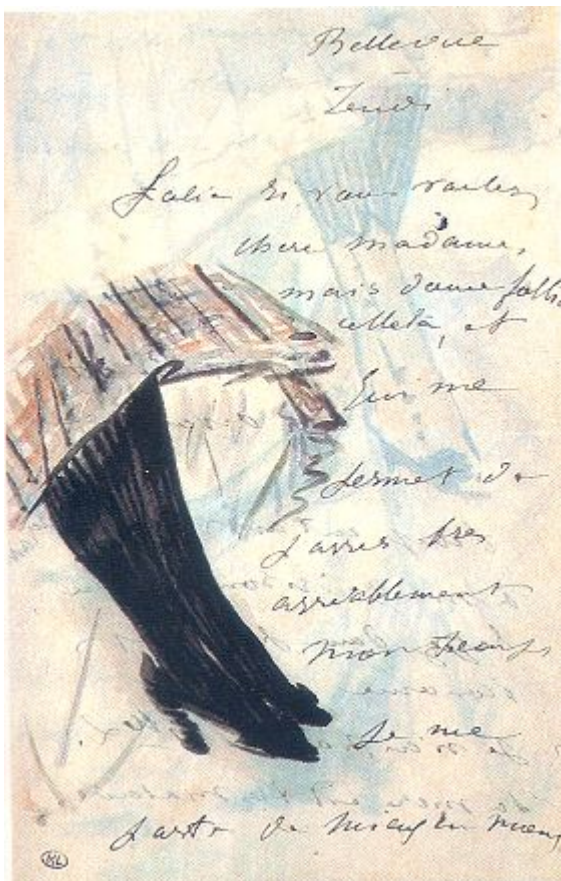 Bellevue
Jeudi
Folie si vous voulez,
chere madame,
mais douce folie
celle là, et
qui me
permet de
passer tres
agréablement
mon temps
Je me
porte de mieux en mieux